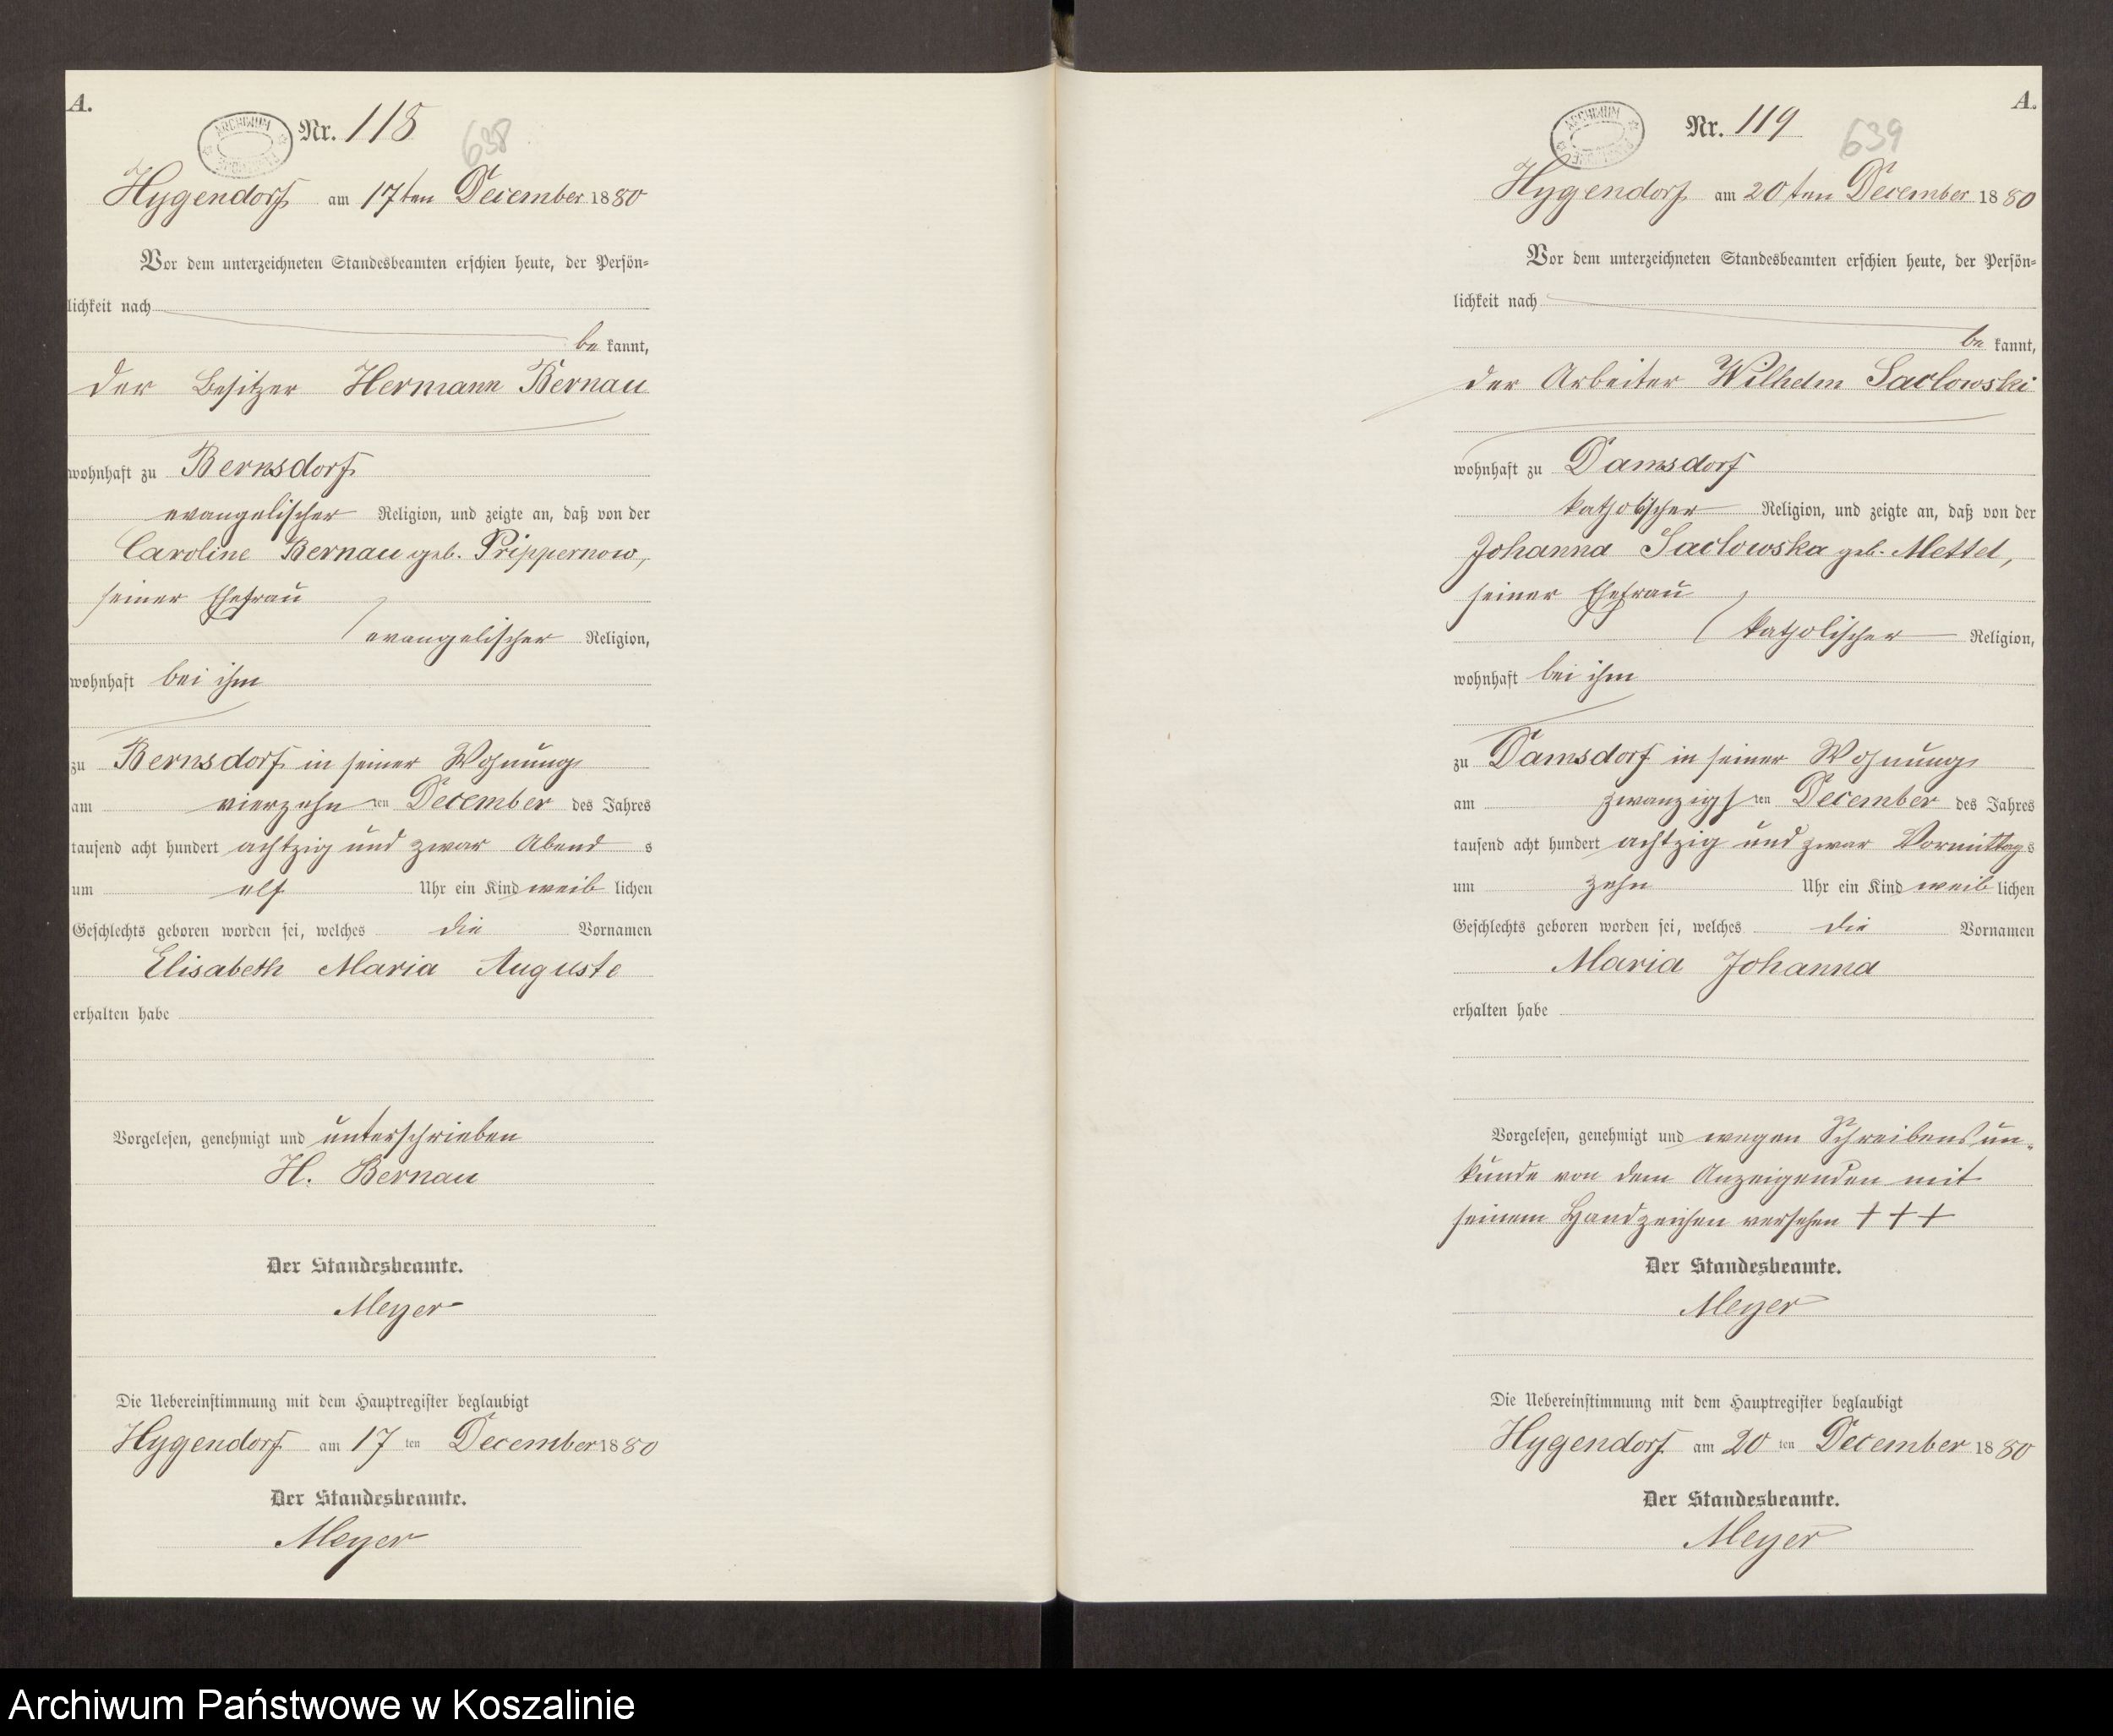 A.
ARCHIWUM
Nr. 118
638
Hygendorf am 17ten December 1880
Vor dem unterzeichneten Standesbeamten erschien heute, der Persön=
lichkeit nach
be kannt,
der Besitzer Hermann Bernau
wohnhaft zu Bernsdorf
evangelischer Religion, und zeigte an, daß von der
Caroline Bernau geb. Prippernow,
seiner Ehefrau
evangelischer Religion,
wohnhaft bei ihm
zu Bernsdorf in seiner Wohnung
am vierzehn ten December des Jahres
tausend acht hundert achtzig und zwar Abend s
um elf Uhr ein Kind weib lichen
Geschlechts geboren worden sei, welches die Vornamen
Elisabeth Maria Auguste
erhalten habe
Vorgelesen, genehmigt und unterschrieben
H. Bernau
Der Standesbeamte.
Meyer
Die Uebereinstimmung mit dem Hauptregister beglaubigt
Hygendorf am 17 ten December 1880
Der Standesbeamte.
Meyer
A.
ARCHIWUM
Nr. 119
639
Hygendorf am 20ten December 1880
Vor dem unterzeichneten Standesbeamten erschien heute, der Persön=
lichkeit nach
be kannt,
der Arbeiter Wilhelm Saclowski
wohnhaft zu Damsdorf
katholischer Religion, und zeigte an, daß von der
Johanna Saclowska geb. Mettel,
seiner Ehefrau
katholischer Religion,
wohnhaft bei ihm
zu Damsdorf in seiner Wohnung
am zwanzigs ten December des Jahres
tausend acht hundert achtzig und zwar Vormittags
um zehn Uhr ein Kind weib lichen
Geschlechts geboren worden sei, welches die Vornamen
Maria Johanna
erhalten habe
Vorgelesen, genehmigt und wegen Schreibensun=
kunde von dem Anzeigenden mit
seinem Handzeichen versehen + + +
Der Standesbeamte.
Meyer
Die Uebereinstimmung mit dem Hauptregister beglaubigt
Hygendorf am 20 ten December 1880
Der Standesbeamte.
Meyer
Archiwum Państwowe w Koszalinie